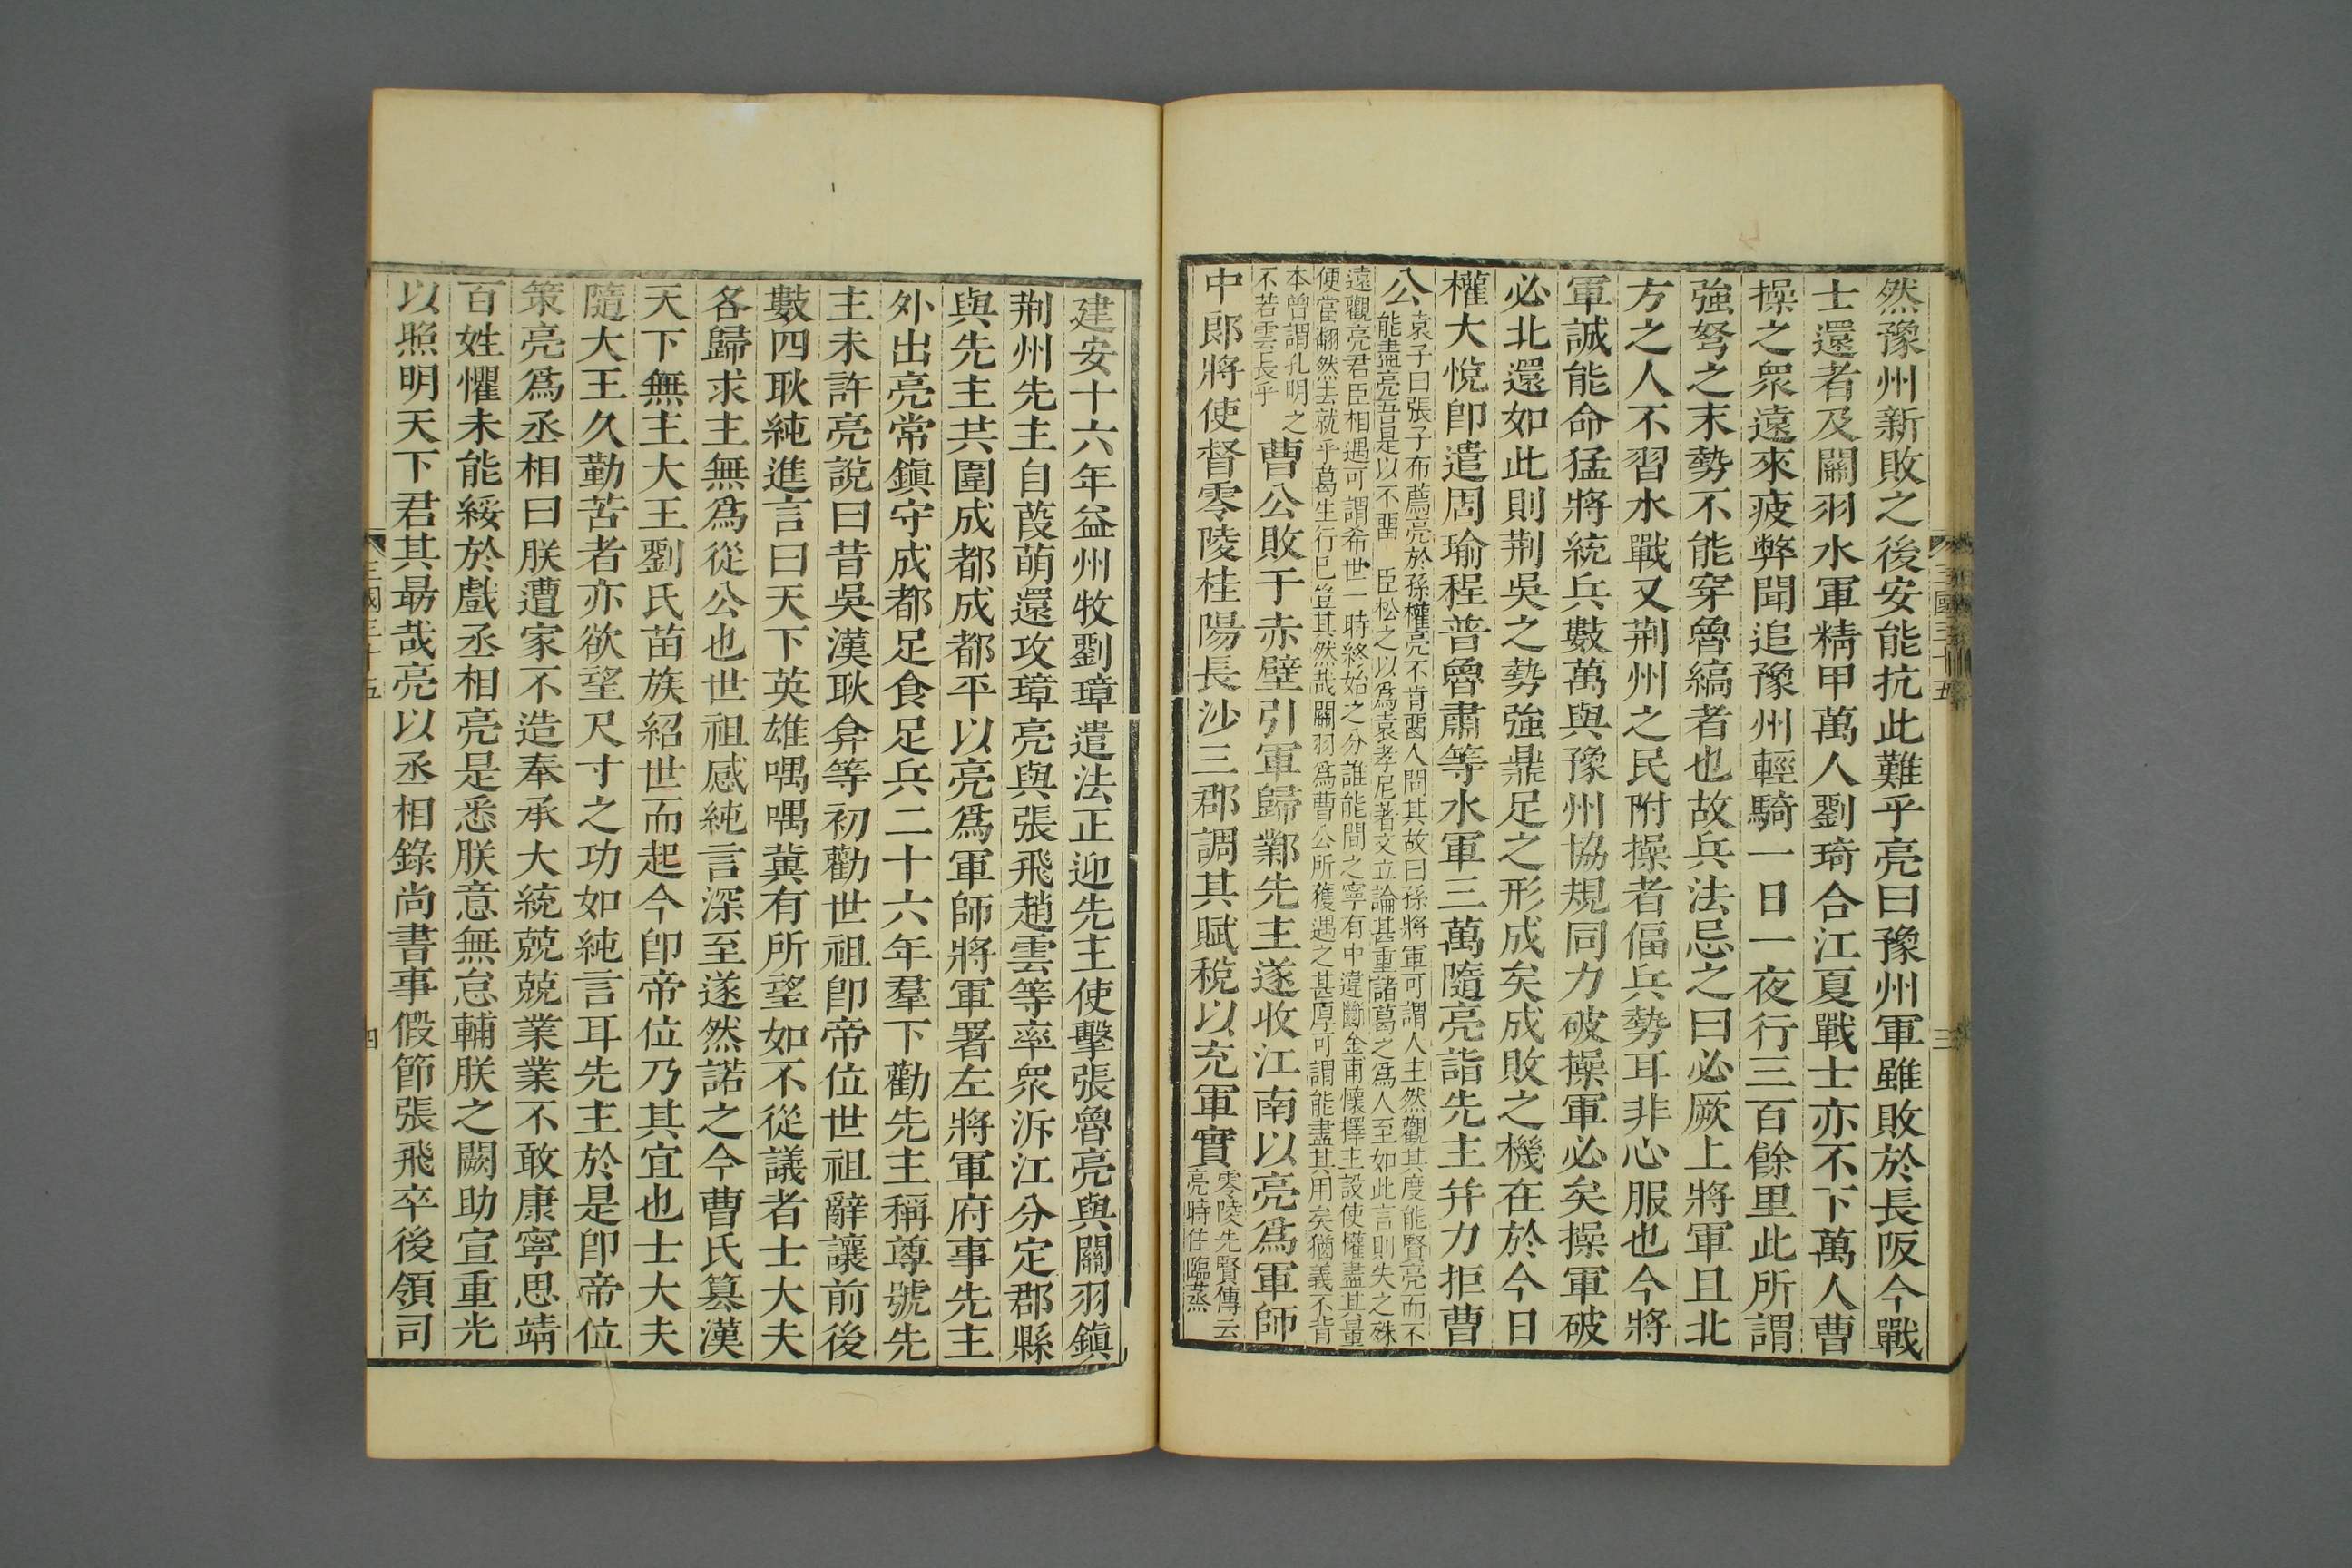 三國三十五
三
然豫州新敗之後安能抗此難乎亮曰豫州軍雖敗於長阪今戰
士還者及關羽水軍精甲萬人劉琦合江夏戰士亦不下萬人曹
操之衆遠來疲弊聞追豫州輕騎一日一夜行三百餘里此所謂
強弩之末勢不能穿魯縞者也故兵法忌之曰必厥上將軍且北
方之人不習水戰又荆州之民附操者偪兵勢耳非心服也今將
軍誠能命猛將統兵數萬與豫州協規同力破操軍必矣操軍破
必北還如此則荆吳之勢強鼎足之形成矣成敗之機在於今日
權大悅卽遣周瑜程普魯肅等水軍三萬隨亮詣先主幷力拒曹
公
袁子曰張子布薦亮於孫權亮不肯畱人問其故曰孫將軍可謂人主然觀其度能賢亮而不
能盡亮吾是以不畱 臣松之以爲袁孝尼著文立論甚重諸葛之爲人至如此言則失之殊
遠觀亮君臣相遇可謂希世一時終始之分誰能間之寧有中違斷金甫懷擇主設使權盡其量
便當翻然去就乎葛生行已豈其然哉關羽爲曹公所獲遇之甚厚可謂能盡其用矣猶義不背
本曾謂孔明之
不若雲長乎
曹公敗于赤壁引軍歸鄴先主遂收江南以亮爲軍師
中郎將使督零陵桂陽長沙三郡調其賦稅以充軍實
零陵先賢傳云
亮時住臨蒸
建安十六年益州牧劉璋遣法正迎先主使擊張魯亮與關羽鎭
荆州先主自葭萌還攻璋亮與張飛趙雲等率衆泝江分定郡縣
與先主共圍成都成都平以亮爲軍師將軍署左將軍府事先主
外出亮常鎭守成都足食足兵二十六年羣下勸先主稱尊號先
主未許亮說曰昔吳漢耿弇等初勸世祖卽帝位世祖辭讓前後
數四耿純進言曰天下英雄喁喁冀有所望如不從議者士大夫
各歸求主無爲從公也世祖感純言深至遂然諾之今曹氏篡漢
天下無主大王劉氏苗族紹世而起今卽帝位乃其宜也士大夫
隨大王久勤苦者亦欲望尺寸之功如純言耳先主於是卽帝位
策亮爲丞相曰朕遭家不造奉承大統兢兢業業不敢康寧思靖
百姓懼未能綏於戲丞相亮是悉朕意無怠輔朕之闕助宣重光
以照明天下君其勗哉亮以丞相錄尚書事假節張飛卒後領司
三國三十五
四